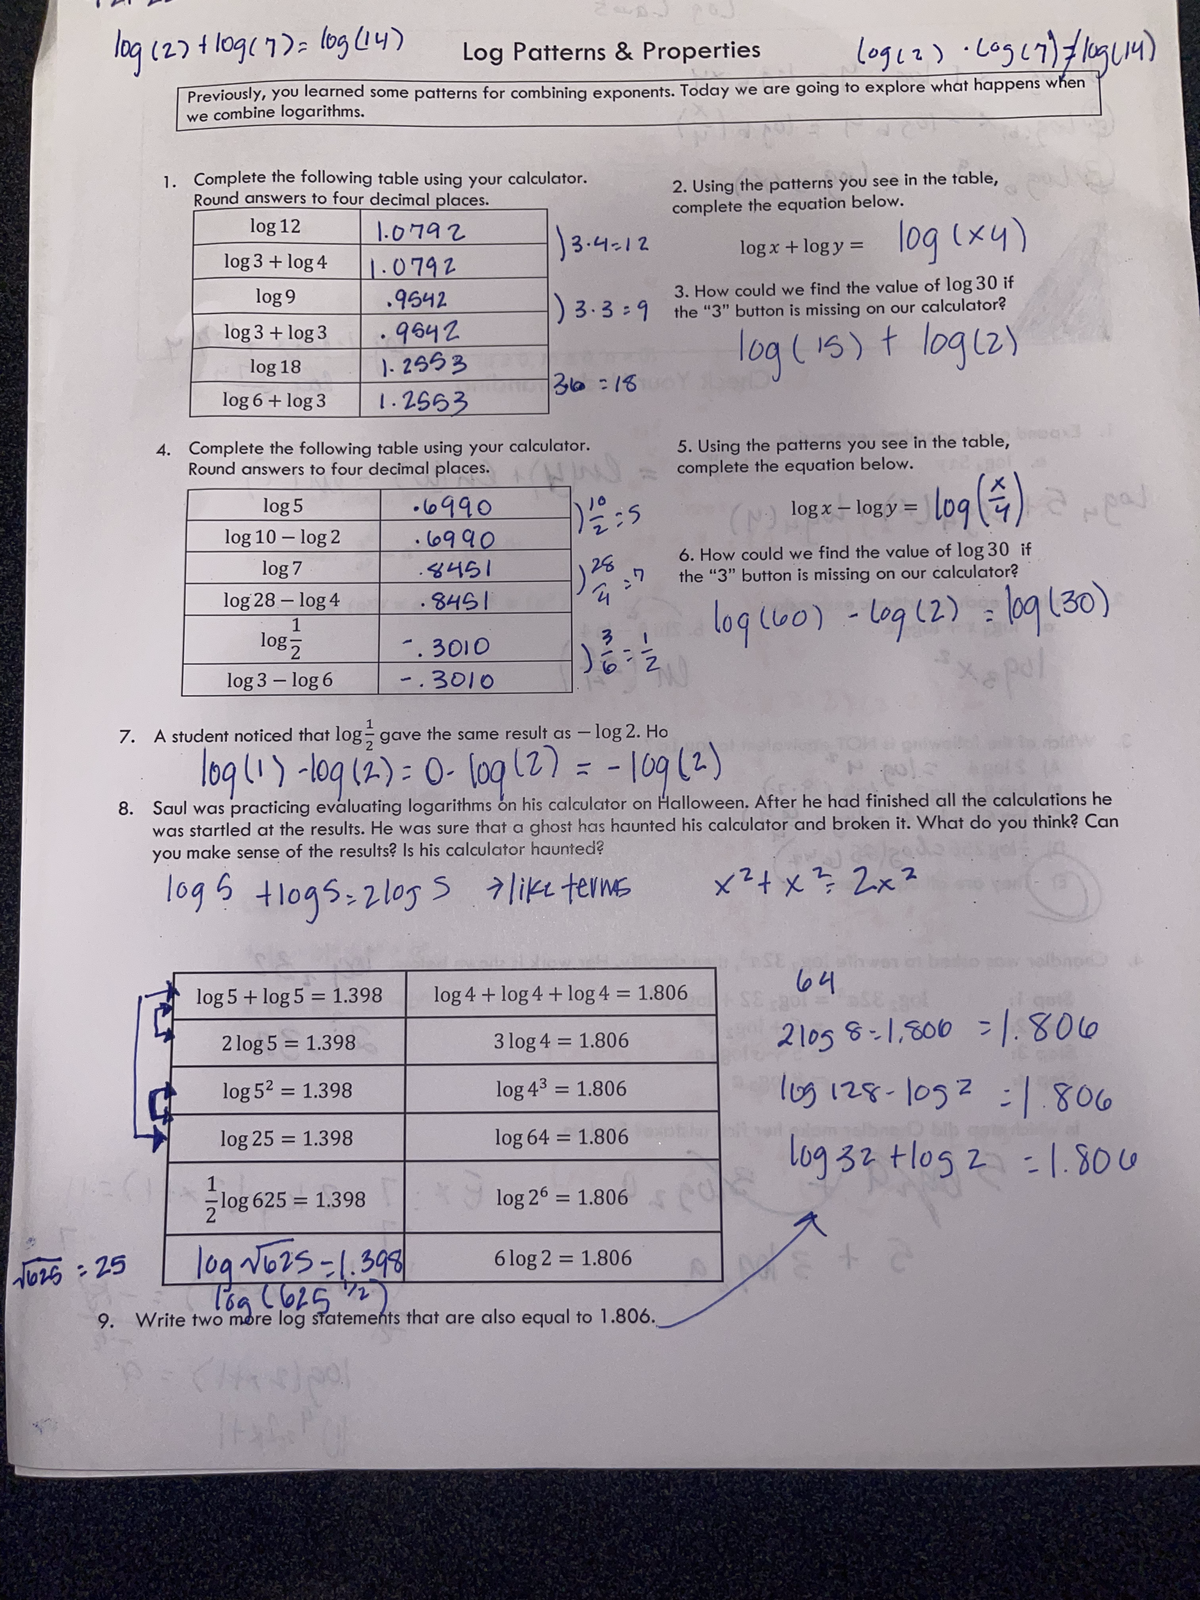 log(2) + log(7) = log(14)
Log Patterns & Properties
log(2) · log(7) ≠ log(14)
Previously, you learned some patterns for combining exponents. Today we are going to explore what happens when
we combine logarithms.
1. Complete the following table using your calculator.
Round answers to four decimal places.
log 12 1.0792
log 3 + log 4 1.0792
)3·4=12
log 9 .9542
log 3 + log 3 .9542
)3·3=9
log 18 1.2553
log 6 + log 3 1.2553
36 = 18
2. Using the patterns you see in the table,
complete the equation below.
log x + log y = log(xy)
3. How could we find the value of log 30 if
the “3” button is missing on our calculator?
log(15) + log(2)
4. Complete the following table using your calculator.
Round answers to four decimal places.
log 5 .6990
log 10 − log 2 .6990
)10/2 = 5
log 7 .8451
log 28 − log 4 .8451
)28/4 = 7
log 1/2 -.3010
log 3 − log 6 -.3010
)3/6 = 1/2
5. Using the patterns you see in the table,
complete the equation below.
log x − log y = log(x/y)
6. How could we find the value of log 30 if
the “3” button is missing on our calculator?
log(60) - log(2) = log(30)
7. A student noticed that log 1/2 gave the same result as − log 2. Ho
log(1) - log(2) = 0 - log(2) = - log(2)
8. Saul was practicing evaluating logarithms on his calculator on Halloween. After he had finished all the calculations he
was startled at the results. He was sure that a ghost has haunted his calculator and broken it. What do you think? Can
you make sense of the results? Is his calculator haunted?
log 5 + log 5 = 2 log 5 → like terms x² + x² = 2x²
log 5 + log 5 = 1.398 log 4 + log 4 + log 4 = 1.806
2 log 5 = 1.398 3 log 4 = 1.806
log 5² = 1.398 log 4³ = 1.806
log 25 = 1.398 log 64 = 1.806
1/2 log 625 = 1.398 log 2⁶ = 1.806
log √625 = 1.398 6 log 2 = 1.806
√625 = 25
log(625^1/2)
64
2 log 8 = 1.806 = 1.806
log 128 - log 2 = 1.806
log 32 + log 2 = 1.806
9. Write two more log statements that are also equal to 1.806.